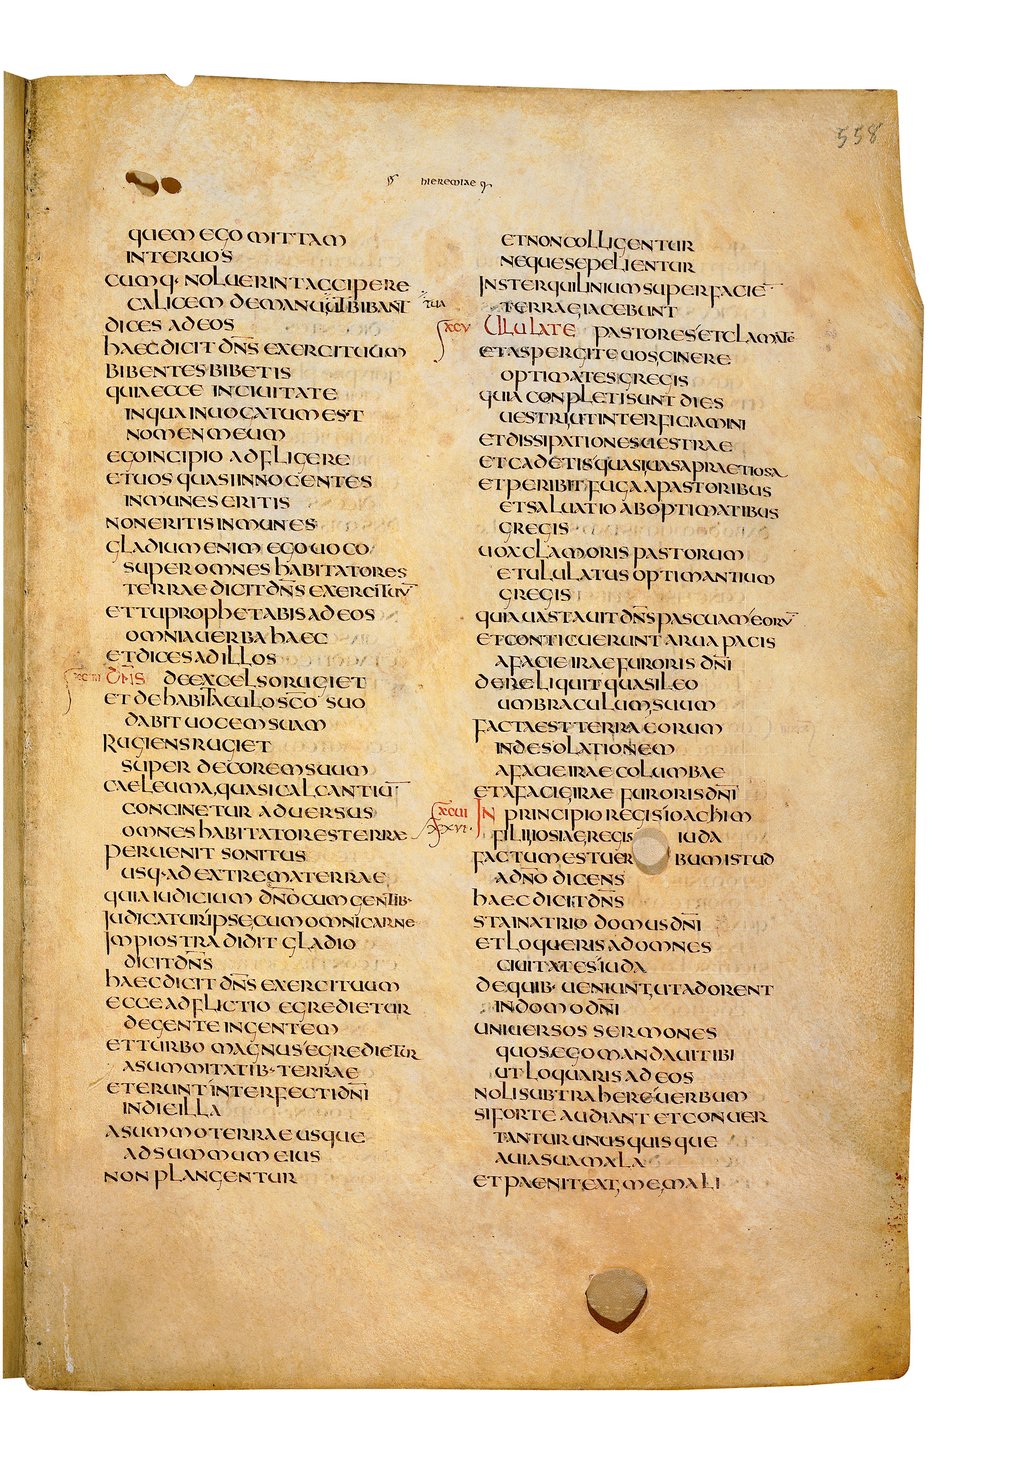 558
hieremiae
quem ego mittam
inter uos
cumq· noluerint accipere
calicem de manu tua ut bibant
dices ad eos
haec dicit dns exercituum
bibentes bibetis
quia ecce in ciuitate
in qua inuocatum est
nomen meum
ego incipio adfligere
et uos quasi innocentes
inmunes eritis
non eritis inmunes
gladium enim ego uoco
super omnes habitatores
terrae dicit dns exercituū
et tu prophetabis ad eos
omnia uerba haec
et dices ad illos
Dns de excelso rugiet
et de habitaculo sco suo
dabit uocem suam
Rugiens rugiet
super decorem suum
caeleuma quasi calcantiū
concinetur aduersus
omnes habitatores terrae
peruenit sonitus
usq· ad extrema terrae
quia iudicium dno cum gentib·
Iudicatur ipse cum omni carne
Impios tradidit gladio
dicit dns
haec dicit dns exercituum
ecce adflictio egredietur
de gente in gentem
et turbo magnus egredietur
a summitatib· terrae
et erunt interfecti dni
in die illa
a summo terrae usque
ad summum eius
non plangentur
et non colligentur
neque sepelientur
In sterquilinium super faciē
terrae iacebunt
xcv Ululate pastores et clamate
et aspergite uos cinere
optimates gregis
quia conpleti sunt dies
uestri ut interficiamini
et dissipationes uestrae
et cadetis quasi uasa praetiosa
et peribit fuga a pastoribus
et saluatio ab optimatibus
gregis
uox clamoris pastorum
et ululatus optimantium
gregis
quia uastauit dns pascuam eorū
et conticuerunt arua pacis
a facie irae furoris dni
dereliquit quasi leo
umbraculum suum
facta est terra eorum
in desolationem
a facie irae columbae
et a facie irae furoris dni
xcvi In principio regis ioachim
xxvi· filii iosiae regis iuda
factum est uerbum istud
a dno dicens
haec dicit dns
sta in atrio domus dni
et loqueris ad omnes
ciuitates iuda
de quib· ueniunt ut adorent
in domo dni
uniuersos sermones
quos ego mandaui tibi
ut loquaris ad eos
noli subtrahere uerbum
si forte audiant et conuer
tantur unus quisque
a uia sua mala
et paeniteat me mali